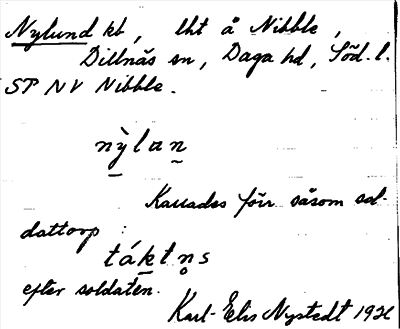 Nylund kb, lht å Nibble,
Dillnäs sn, Daga hd, Söd. l.
SP NV Nibble.
nỳlan̲
Kallades förr såsom sol-
dattorp :
táktn̥s
efter soldaten.
Karl-Elis Nystedt 1926